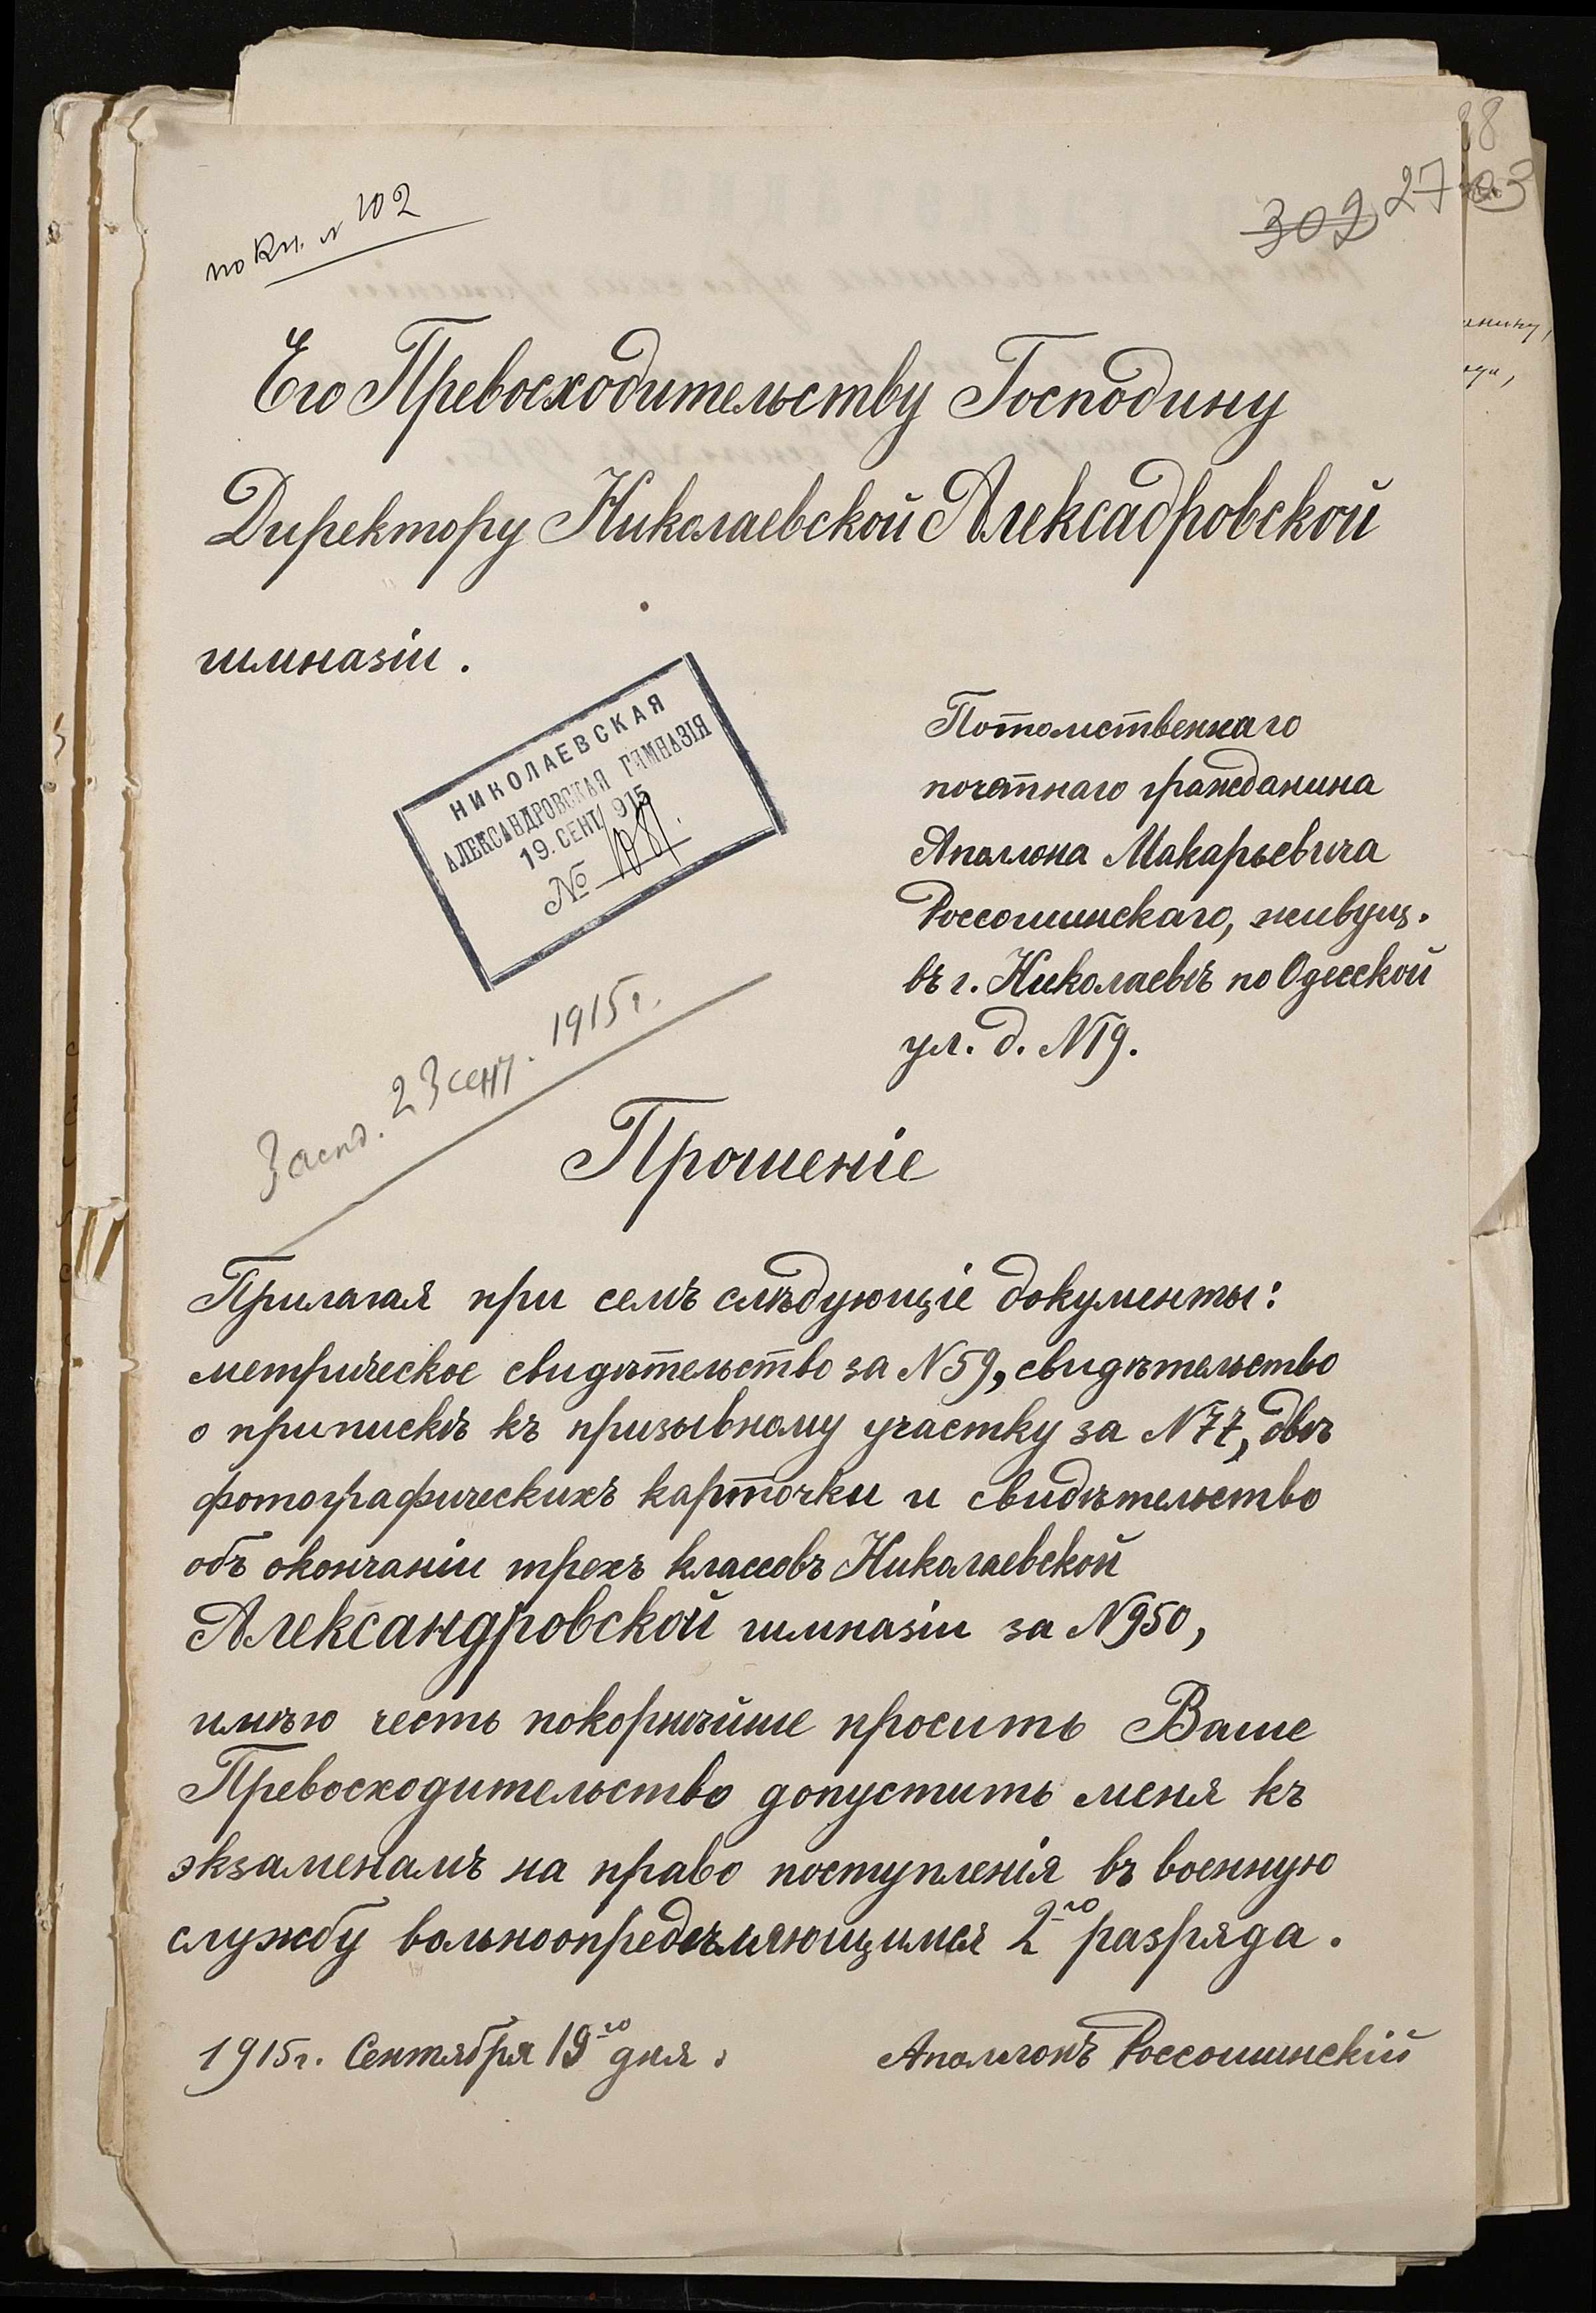 по Кн. № 102
302 27
Его Превосходительству Господину
Директору Николаевской Алексадровской
гимназіи.
НИКОЛАЕВСКАЯ
АЛЕКСАНДРОВСКАЯ ГИМНАЗІЯ
19. СЕНТ. 915
№ 1081.
Потомственнаго
почетнаго гражданина
Аполлона Макарьевича
Россошинскаго, живущ.
въ г. Николаевѣ по Одесской
ул. д. №19.
23 сент. 1915 г.
Прошеніе
Прилагая при семъ слѣдующіе документы:
метрическое свидѣтельство за №59, свидѣтельство
о припискѣ къ призывному участку за №77, двѣ
фотографическихъ карточки и свидѣтельство
объ окончаніи трехъ классовъ Николаевской
Александровской гимназіи за №950,
имѣю честь покорнѣйше просить Ваше
Превосходительство допустить меня къ
экзаменамъ на право поступленія въ военную
службу вольноопредѣляющимся 2го разряда.
1915г. Сентября 19го дня.
Аполлонъ Россошинскій